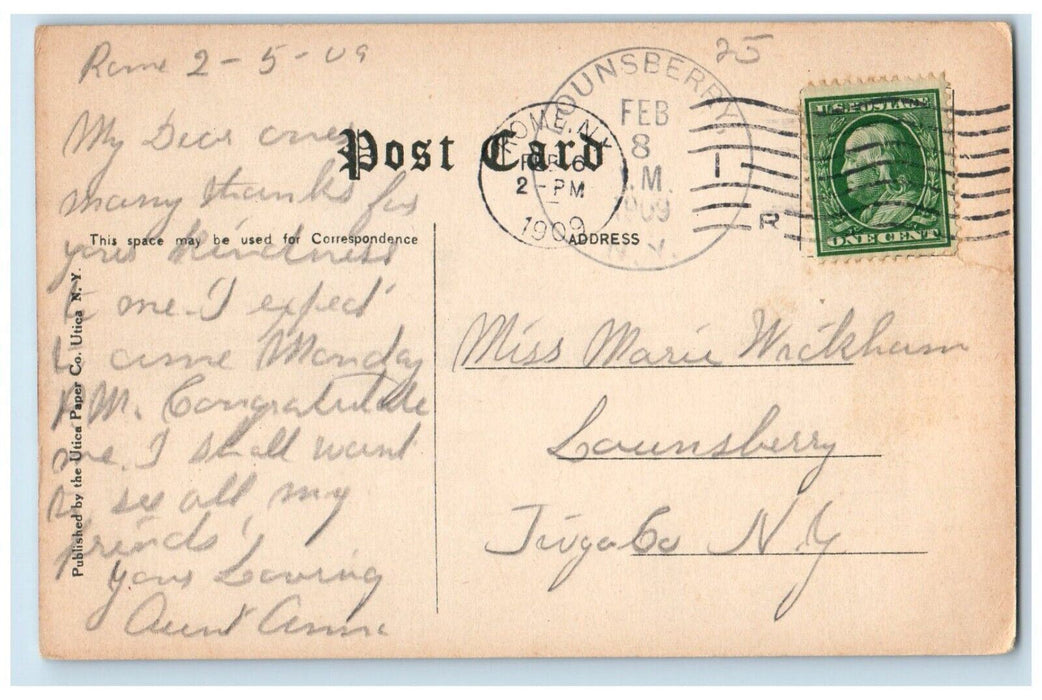 Rome 2-5-09
25
My Dear ones
many thanks for
your kindness
to me. I expect
to come Monday
P.M. Congratulate
me. I shall want
to see all my
friends.
Your Loving
Aunt Anna
Post Card
This space may be used for Correspondence
ADDRESS
Published by the Utica Paper Co. Utica N. Y.
ROME, N.Y.
FEB 6
2 - PM
1909
LOUNSBERRY,
FEB
8
.M.
1909
N.Y.
1
R
U.S. POSTAGE
ONE CENT
Miss Marie Wickham
Lounsberry
Tioga Co N.Y